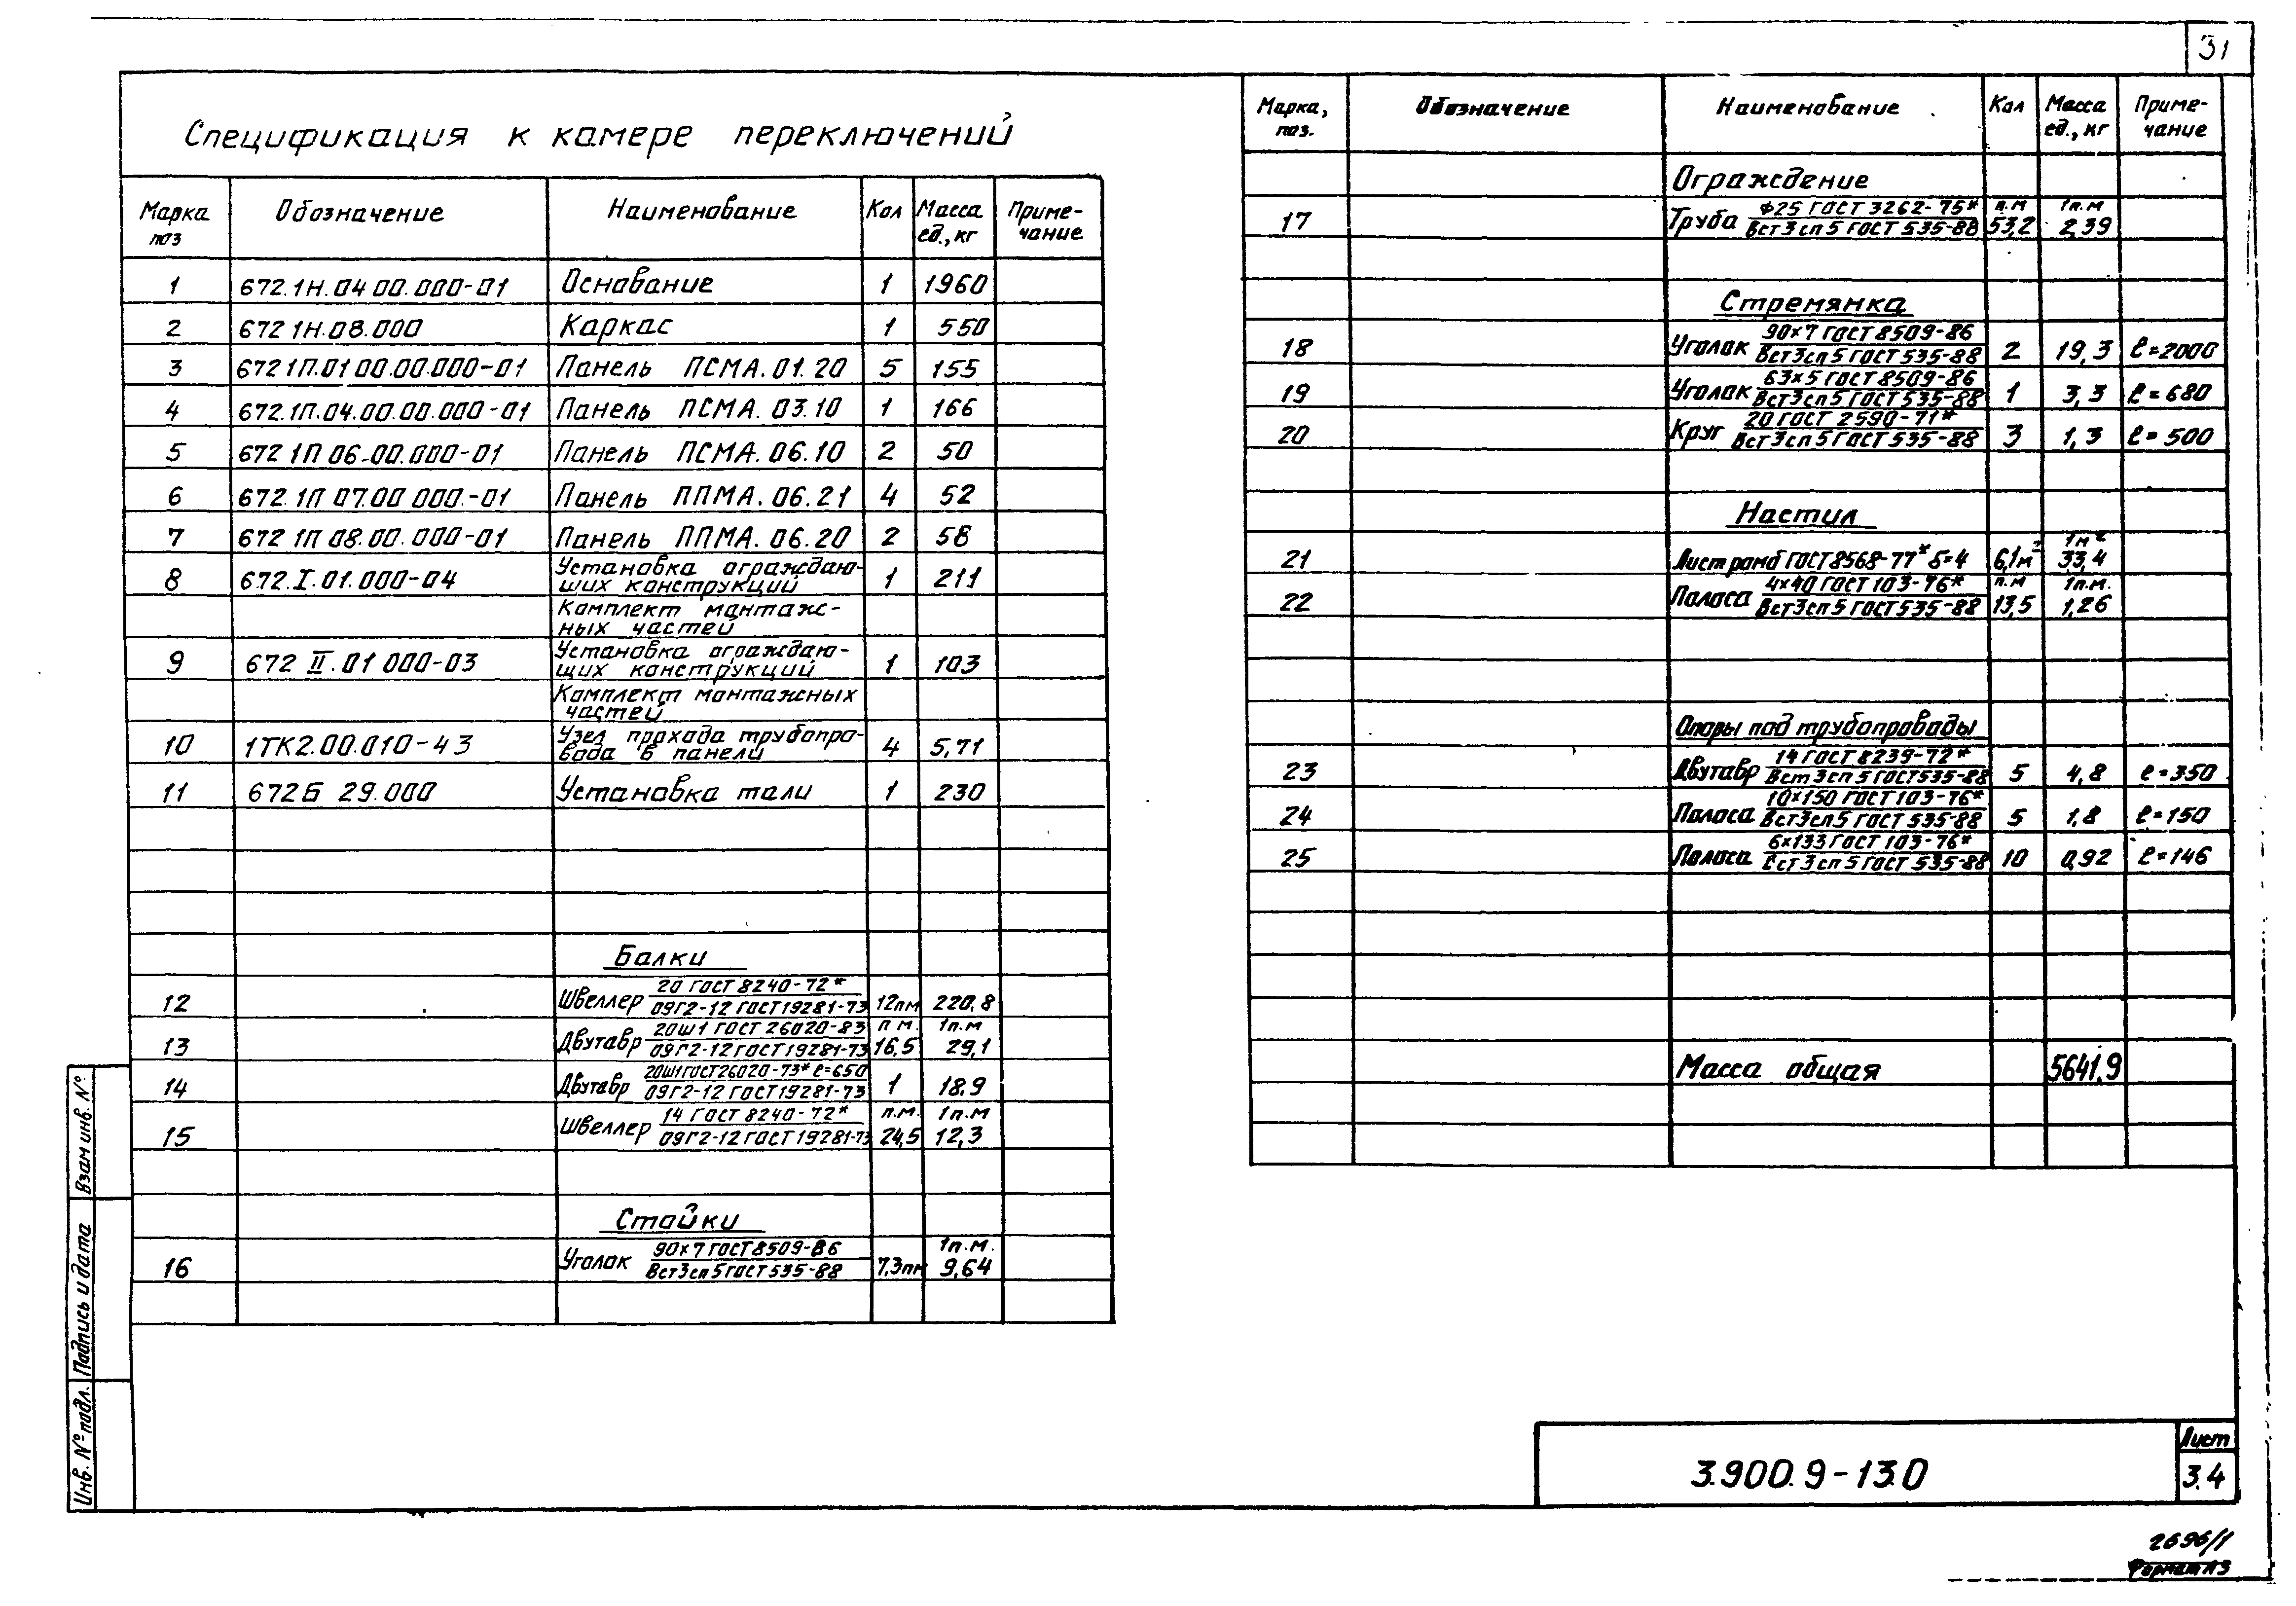 31
Спецификация к камере переключений
Марка поз Обозначение Наименование Кол Масса ед., кг Примечание
1 672.1Н.04 00.000-01 Основание 1 1960
2 672 1Н.08.000 Каркас 1 550
3 672 1П.01 00.00.000-01 Панель ПСМА.01.20 5 155
4 672.1П.04.00.00.000-01 Панель ПСМА.03.10 1 166
5 672 1П 06-00.000-01 Панель ПСМА.06.10 2 50
6 672.1П 07.00 000.-01 Панель ППМА.06.21 4 52
7 672 1П 08.00.000-01 Панель ППМА.06.20 2 58
8 672.I.01.000-04 Установка ограждаю-
щих конструкций 1 211
Комплект монтаж-
ных частей
9 672 II.01 000-03 Установка ограждаю-
щих конструкций 1 103
Комплект монтажных
частей
10 1ТК2.00.010-43 Узел прохода трубопро-
вода в панели 4 5,71
11 672Б 29.000 Установка тали 1 230
Балки
12 Швеллер 20 ГОСТ 8240-72* / 09Г2-12 ГОСТ 19281-73 12пм 220,8
13 Двутавр 20Ш1 ГОСТ 26020-83 / 09Г2-12 ГОСТ 19281-73 п м. 16,5 1п.м 29,1
14 Двутавр 20Ш1 ГОСТ 26020-73* ℓ=650 / 09Г2-12 ГОСТ 19281-73 1 18,9
15 Швеллер 14 ГОСТ 8240-72* / 09Г2-12 ГОСТ 19281-73 п.м. 24,5 1п.м 12,3
Стойки
16 Уголок 90×7 ГОСТ 8509-86 / Вст3сп5 ГОСТ 535-88 7,3пм 1п.м. 9,64
Марка, поз. Обозначение Наименование Кол Масса ед., кг Примечание
Ограждение
17 Труба Ф25 ГОСТ 3262-75* / Вст3сп5 ГОСТ 535-88 п.м 53,2 1п.м 2,39
Стремянка
18 Уголок 90×7 ГОСТ 8509-86 / Вст3сп5 ГОСТ 535-88 2 19,3 ℓ=2000
19 Уголок 63×5 ГОСТ 8509-86 / Вст3сп5 ГОСТ 535-88 1 3,3 ℓ=680
20 Круг 20 ГОСТ 2590-71* / Вст3сп5 ГОСТ 535-88 3 1,3 ℓ=500
Настил
21 Лист ромб ГОСТ 8568-77* δ=4 6,1м² 1м² 33,4
22 Полоса 4×40 ГОСТ 103-76* / Вст3сп5 ГОСТ 535-88 п.м 13,5 1п.м. 1,26
Опоры под трубопроводы
23 Двутавр 14 ГОСТ 8239-72* / Вст3сп5 ГОСТ 535-88 5 4,8 ℓ=350
24 Полоса 10×150 ГОСТ 103-76* / Вст3сп5 ГОСТ 535-88 5 1,8 ℓ=150
25 Полоса 6×133 ГОСТ 103-76* / Вст3сп5 ГОСТ 535-88 10 0,92 ℓ=146
Масса общая 5641,9
Взам инв. №
Подпись и дата
Инв. № подл.
3.900.9-13.0
Лист
3.4
2696/1
Формат А3